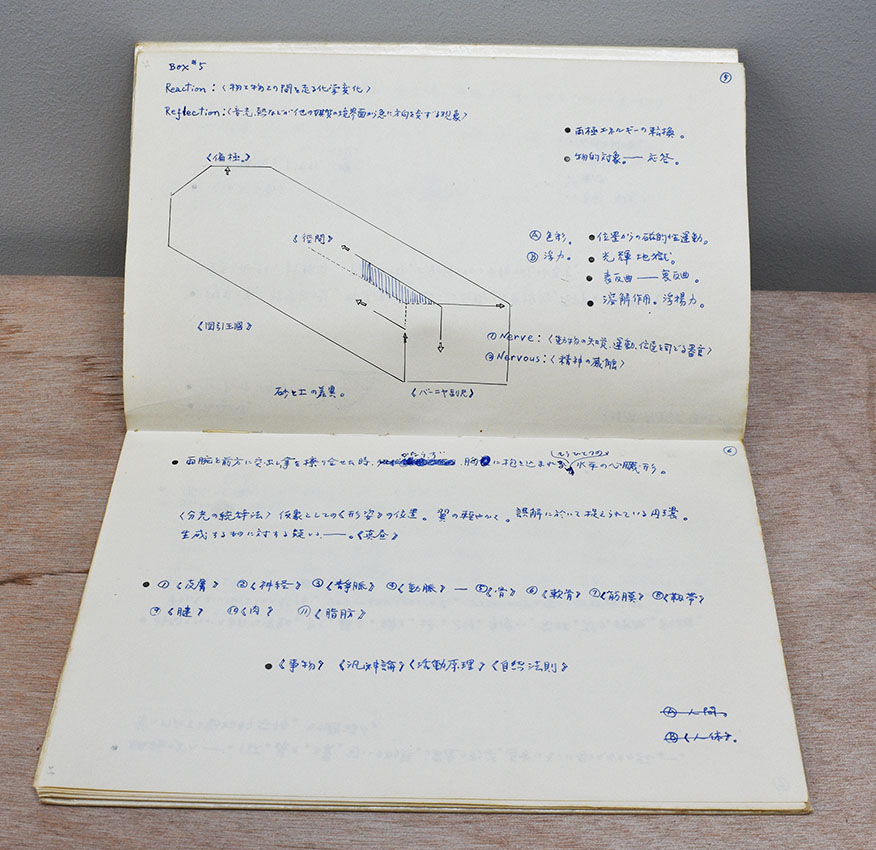 Box #5
⑤
Reaction：〈物と物との間を走る化学変化〉
Reflection：〈音、光、熱などが他の媒質の境界面から急に方向を変する現象〉
● 両極エネルギーの転換。
● 物的対象。── 応答。
《偏極。》
《径間》
Ⓐ 色形。 ● 位置からの磁的性運動。
Ⓑ 浮力。 ● 光輝地獄。
● 表反曲 ── 裏反曲。
● 溶解作用。浮揚力。
《図引王國》
① Nerve：〈動物の知覚、運動、伝達を司どる器官〉
② Nervous：〈精神の〉
砂と土の差異。
《バーニヤ副尺》
⑥
● 両腕を前方に突出し拳を擦り合せた時、胸に抱き込まれた水平の心臓形。
もうひとつの
〈分光の〉仮象としての《形姿》の位置。翼の軽やかさ。誤解に於いて捉えられている内実。
生成する物に対する疑い──。《真昼》
● ①《皮膚》 ②《神経》 ③《静脈》 ④《動脈》 ─ ⑤《骨》 ⑥《軟骨》 ⑦《筋膜》 ⑧《靱帯》
⑨《腱》 ⑩《肉》 ⑪《脂肪》
● 《事物》 《汎神論》《活動原理》《自然法則》
Ⓐ 人間。
Ⓑ 《人体》。